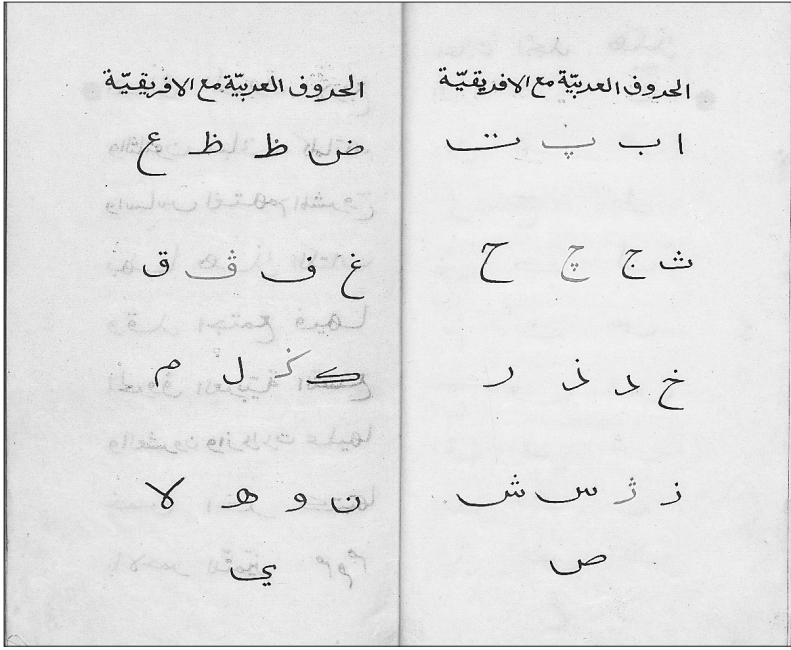 الحروف العربيّة مع الافريقيّة
ا ب پ ت
ث ج چ ح
خ د ذ ر
ز ژ س ش
ص
الحروف العربيّة مع الافريقيّة
ض ط ظ ع
غ ف ڤ ق
ك ل م
ن و ه لا
ي